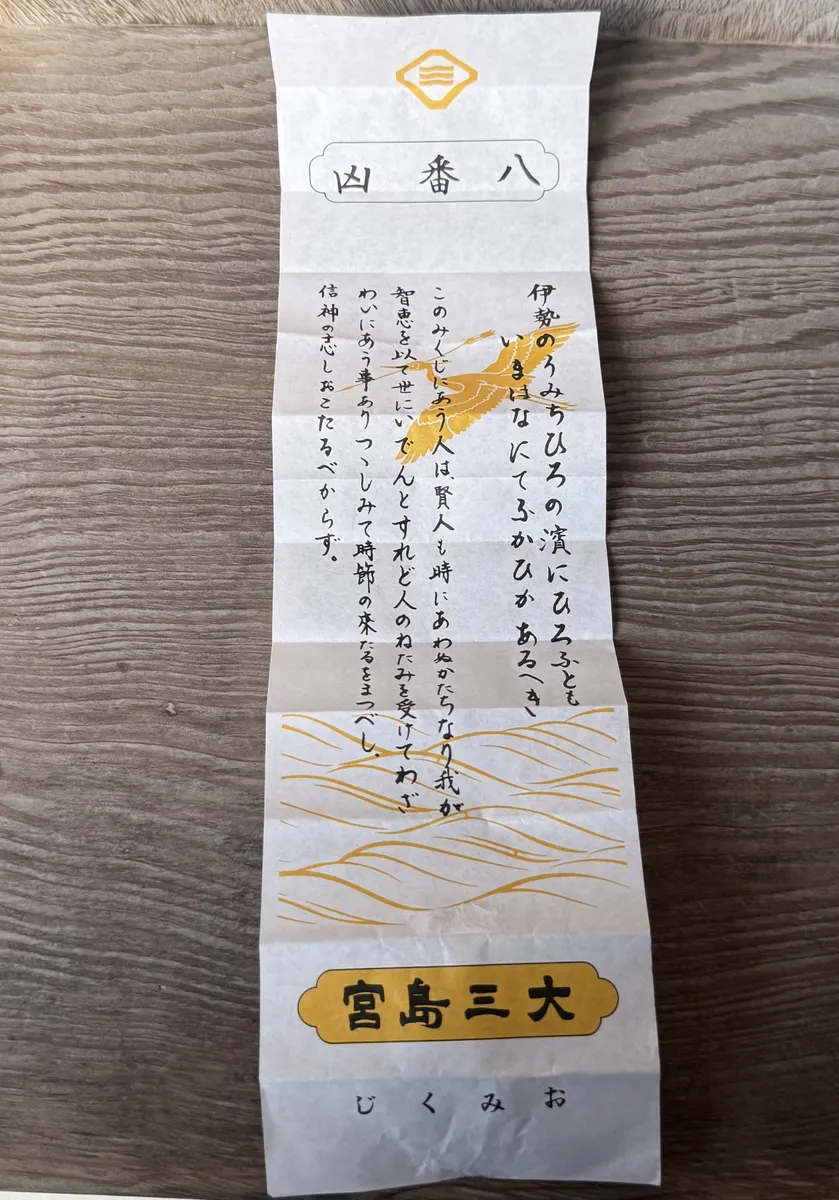 八番凶
伊勢のうみちひろの濱にひろふとも
いまはなにてふかひかあるへき
このみくじにあう人は、賢人も時にあわぬかたちなり我が
智恵を以て世にいでんとすれど人のねたみを受けてわざ
わいにあう事ありつゝしみて時節の來たるをまつべし。
信神の志しおこたるべからず。
大三島宮
おみくじ